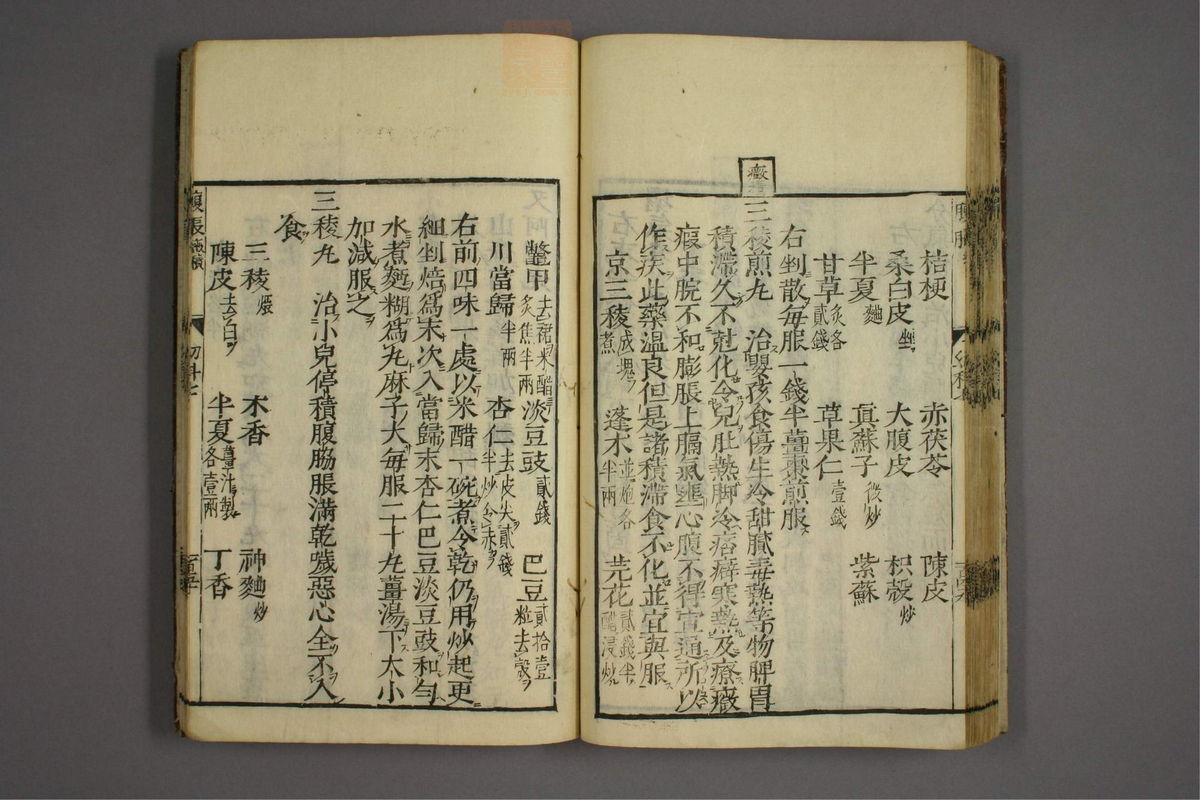 桔梗 赤茯苓 陳皮
桑白皮 大腹皮 枳殼炒
半夏麯 眞蘇子微炒 紫蘇
甘草炙各貳錢 草果仁壹錢
右剉散毎服一錢半薑棗煎服
癥
三稜煎丸 治嬰孩食傷生冷甜膩毒熱等物脾胃
積滯久不尅化令兒肚熱脚冷痞癖寒熱及療癥
瘕中脘不和膨脹上膈氣壅心腹不得宣通所以
作疾此藥温良但是諸積滯食不化並宜與服
京三稜煮 蓬朮並炮各半兩 芫花貳錢半醋浸炒
鼈甲去裙米醋炙焦半兩 淡豆豉貳錢 巴豆貳拾壹粒去殼
川當歸半兩 杏仁去皮尖貳錢半炒令赤
右前四味一處以米醋一碗煮令乾仍用炒起更
細剉焙爲末次入當歸末杏仁巴豆淡豆豉和勻
水煮麪糊爲丸麻子大毎服二十丸薑湯下大小
加減服之
三稜丸 治小兒停積腹脇脹滿乾噦惡心全不入
食
三稜煨 木香 神麯炒
陳皮去白 半夏薑汁製各壹兩 丁香
腹脹